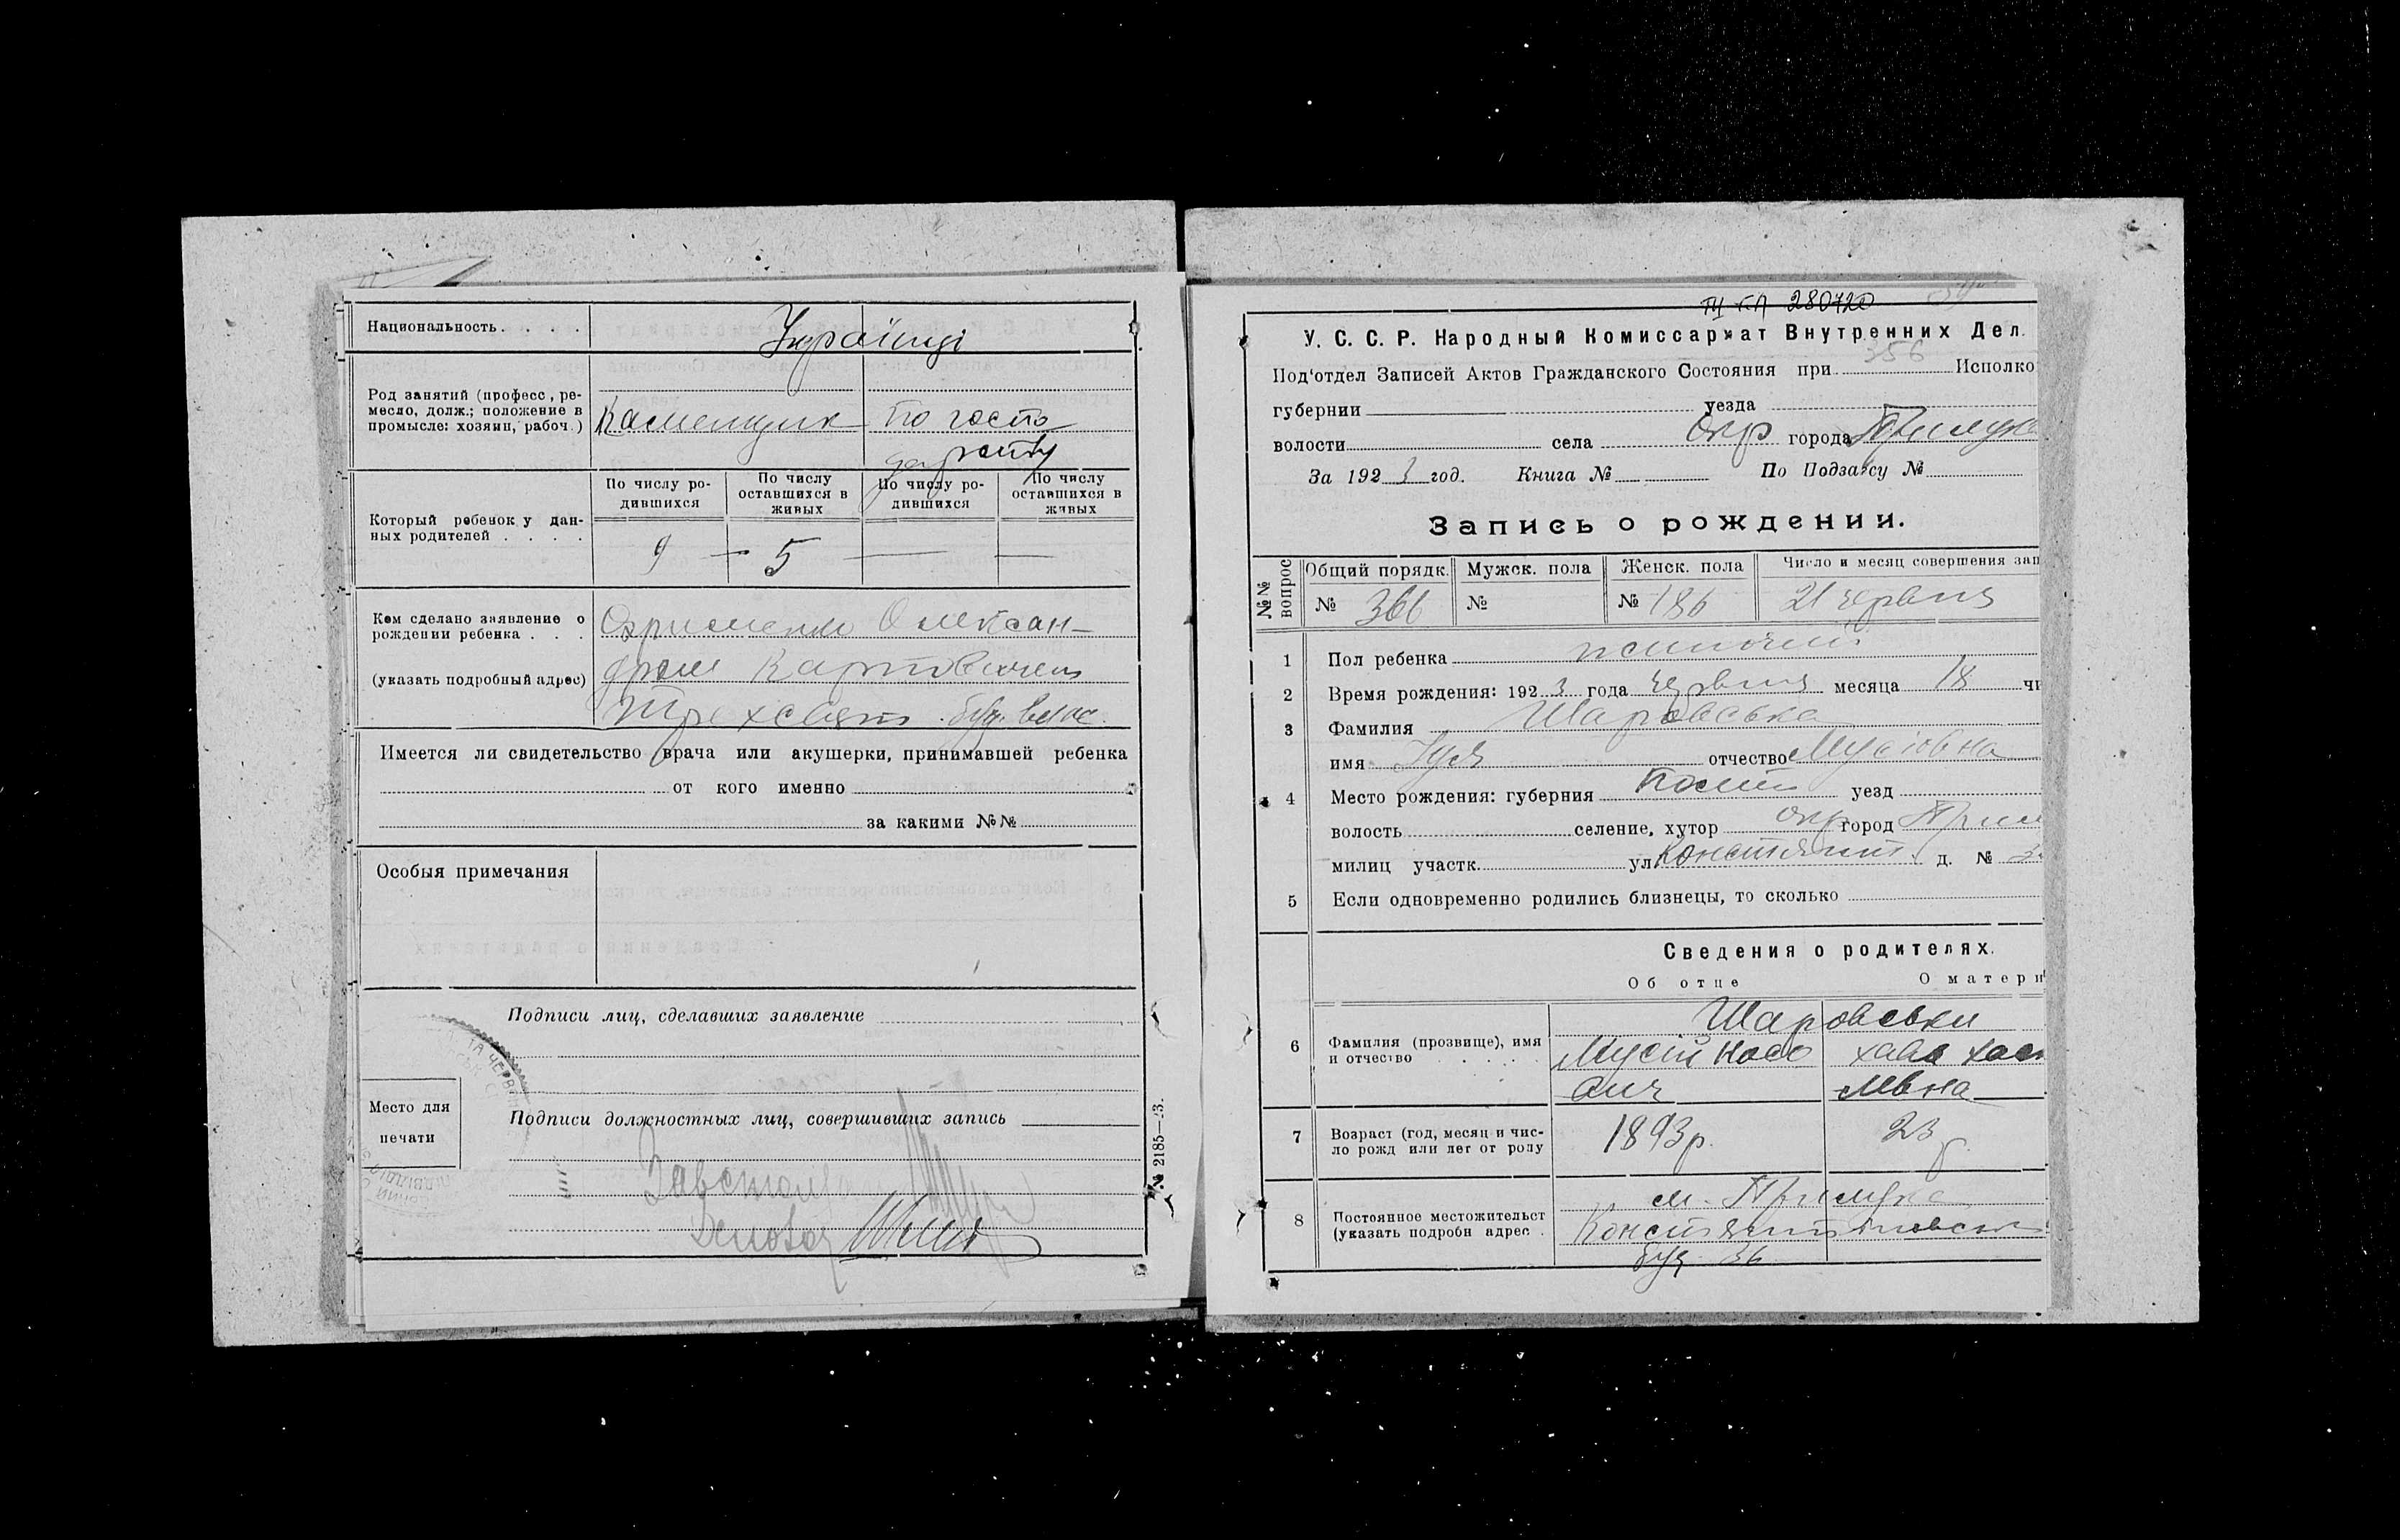 Национальность . . . . Українці
Род занятий (професс, ре-
месло, долж.; положение в
промысле: хозяин, рабоч.) Каменщик По госпо
дарству
Который ребенок у дан-
ных родителей . . . .
По числу ро-
дившихся
По числу
оставшихся в
живых
По числу ро-
дившихся
По числу
оставшихся в
живых
9 — 5 — —
Кем сделано заявление о
рождении ребенка . . .
(указать подробный адрес)
Охрименко Олексан-
дром Карповичем
Трехсвят. буд. власн.
Имеется ли свидетельство врача или акушерки, принимавшей ребенка
от кого именно
за какими №№
Особыя примечания
Подписи лиц, сделавших заявление
Место для
печати
Подписи должностных лиц, совершивших запись
Завстолу
Діловод
№ 2185—23.
280720
У. С. С. Р. Народный Комиссариат Внутренних Дел.
356
Под'отдел Записей Актов Гражданского Состояния при Исполко
губернии уезда
волости села Окр города Прилука
За 1923 год. Книга № По Подзагсу №
Запись о рождении.
№№ вопрос
Общий порядк. Мужск. пола Женск. пола Число и месяц совершения зап
№ 366 № № 186 21 червня
1 Пол ребенка жиночий
2 Время рождения: 1923 года червня месяца 18 чи
3 Фамилия Шаровська
имя Гуся отчество Мусіовна
4 Место рождения: губерния Полт уезд
волость селение, хутор окр город Прил
милиц участк. ул Констянт. д. № 3
5 Если одновременно родились близнецы, то сколько
Сведения о родителях.
Об отце О матери
6 Фамилия (прозвище), имя
и отчество . . . . .
Шаровськи
Мусій Носо Хава Хаи
вич мвна
7 Возраст (год, месяц и чис-
ло рожд или лет от роду 1893р. 23 р.
8 Постоянное местожительст
(указать подробн адрес .
м. Прилука
Констянтиновськ
буд. 36